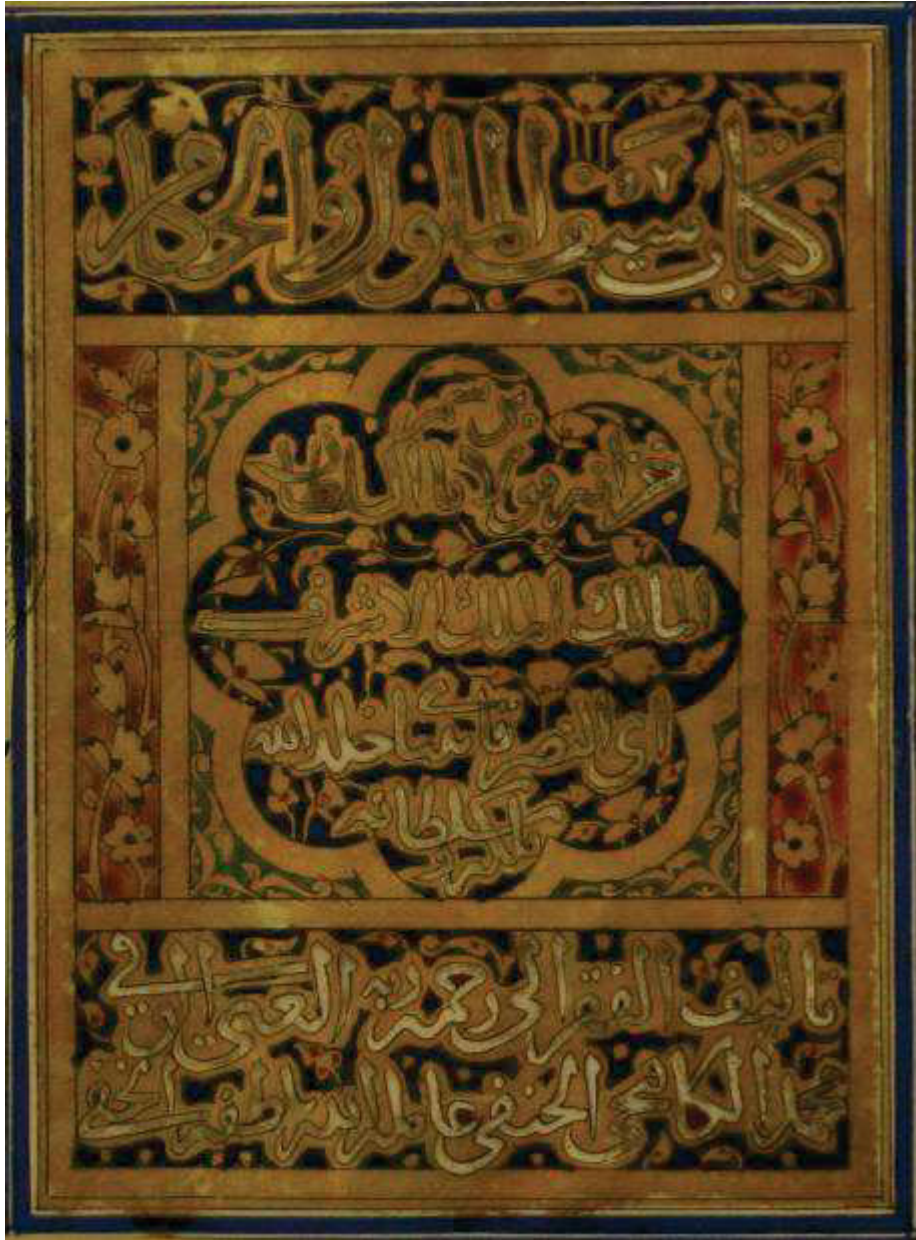 كتاب سيف الملوك والحكام
برسم
خزانة مولانا السلطان
المالك الملك الاشرف
ابي النصر قايتباي خلد الله
سلطانه
تاليف الفقير الى رحمة ربه الغني
محمد الكافيجي الحنفي عامله الله بلطفه الخفي